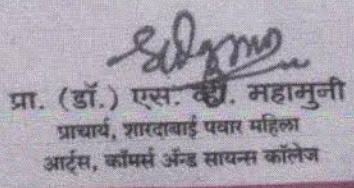 प्रा. (डॉ.) एस. व्ही. महामुनी
प्राचार्य, शारदाबाई पवार महिला
आर्टस्, कॉमर्स अँड सायन्स कॉलेज